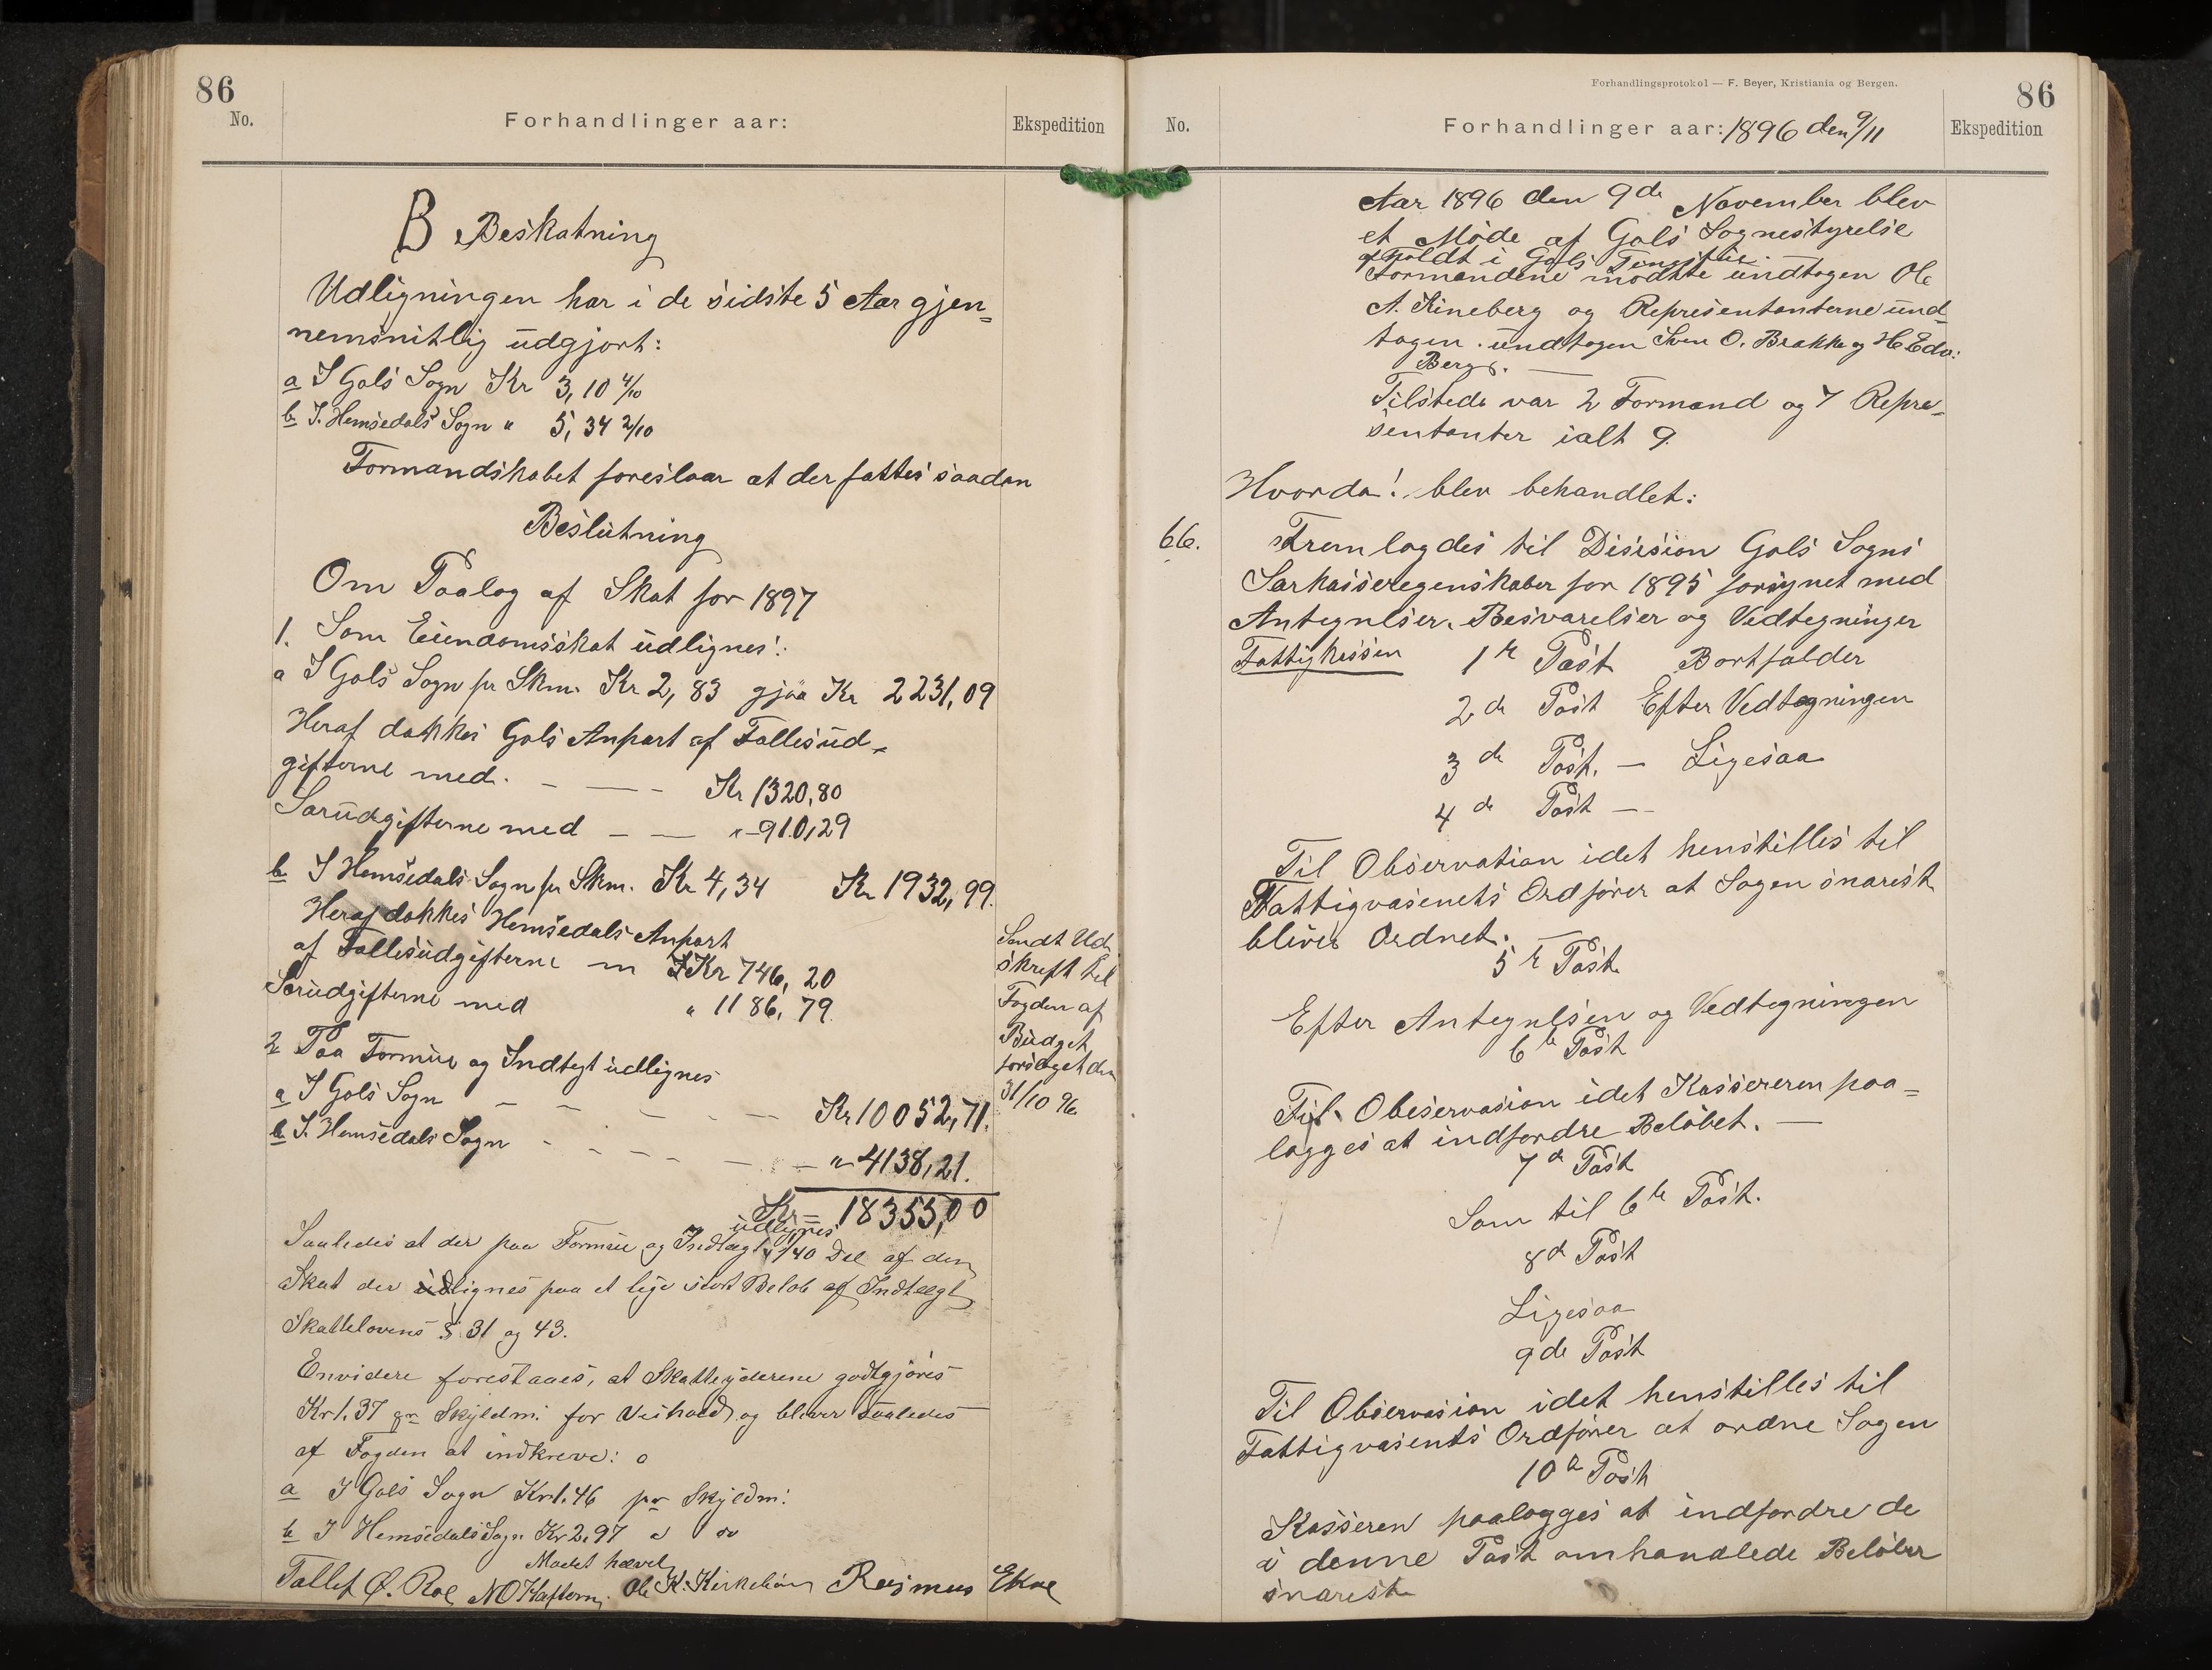 86
No.
Forhandlinger aar:
Ekspedition
B Beskatning
Udligningen har i de sidste 5 Aar gjen-
nemsnitlig udgjort:
a I Gols Sogn Kr 3,10 4/10
b I. Hemsedals Sogn " 5,34 2/10
Formandskabet foreslaar at der fattes saadan
Beslutning
Om Paalag af Skat for 1897
1. Som Eiendomsskat udlignes:
a I Gols Sogn pr Skm. Kr 2,83 gjør Kr 2231,09
Heraf dækkes Gols Anpart af Fællesud-
gifterne med. - — - Kr 1320,80
Særudgifterne med — — " 910,29
b I Hemsedals Sogn pr Skm. Kr 4,34 Kr 1932,99.
Heraf dækkes Hemsedals Anpart
af Fællesudgifterne m Kr 746,20
Særudgifterne med " 1186,79
2 Paa Formue og Indtegt udlignes
a I Gols Sogn - - - - — Kr 10052,71.
b I. Hemsedals Sogn - - - - — " 4138,21.
Kr = 18355,00
Saaledes at der paa Formue og Indtægt udlignes 1/40 Del af den
Skat der udlignes paa et lige stort Beløb af Indtægt
Skattelovens § 31 og 43.
Envidere forestaaes, at Skatteyderene godtgjøres
Kr 1.37 pr Skyldm. for Veihold og bliver saaledes
af Fogden at indkreve:
a I Gols Sogn Kr 1.46 pr Skyldm:
b I Hemsedals Sogn Kr 2,97 " "
Mødet hævet
Tollef Ø. Roe NO Haftorn. Ole K. Kirkebøen Rasmus Ekre
Sendt Ud
skrift til
Fogden af
Budget
forslaget den
31/10 96
Forhandlingsprotokol — F. Beyer, Kristiania og Bergen.
86
No.
Forhandlinger aar: 1896 den 9/11
Ekspedition
Aar 1896 den 9de November blev
et Møde af Gols Sognestyrelse
afholdt i Gols
Formændene mødte undtagen Ole
A. Rineberg og Representanterne und-
tagen. undtagen Sven O. Brakke og H Edv:
Berg. —
Tilstede var 2 Formænd og 7 Repre-
sentanter ialt 9.
Hvorda! blev behandlet:
66. Fremlagdes til Disision Gols Sogns
Særkasseregenskaber for 1895 forsynet med
Antegnelser, Besvarelser og Vedtegninger
Fattigkassen 1te Post Bortfalder
2de Post Efter Vedtegningen
3de Post. — Ligesaa
4de Post —
Til Observation idet henstilles til
Fattigvæsenets Ordfører at Sagen snarest
bliver Ordnet.
5te Post.
Efter Antegnelsen og Vedtegningen
6te Post
Til Obeservasion idet Kassereren paa-
lægges at indfordre Beløbet. —
7de Post
Som til 6te Post.
8de Post
Ligesaa
9de Post
Til Observasion idet henstilles til
Fattigvæsents Ordfører at ordne Sagen
10de Post
Kasseren paalægges at indfordre de
i denne Post omhandlede Beløber
snarest